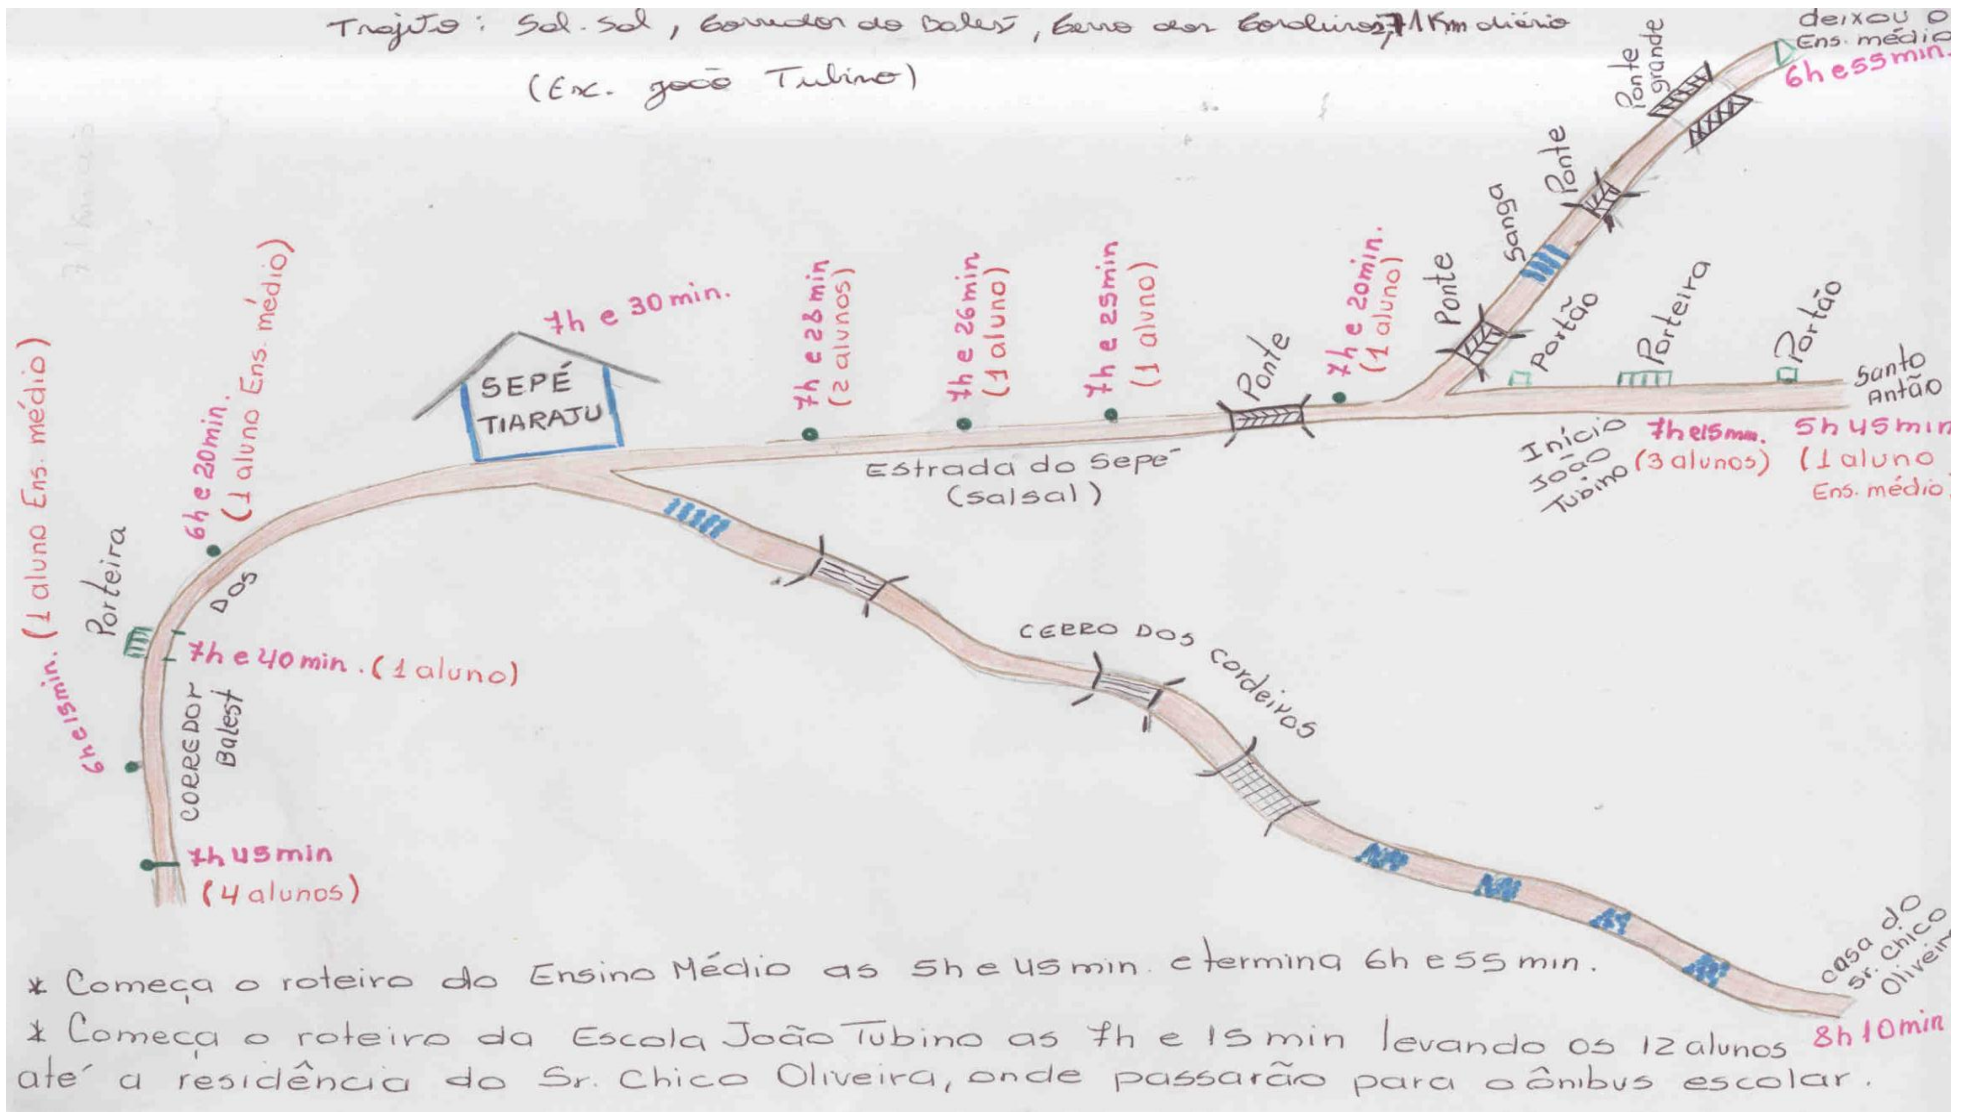 Trajeto: Sal.Sal, Corredor do Balest, Cerro dos Cordeiros, 71 Km diário
(Esc. João Tubino)
deixou o
Ens. médio
6h e 55 min.
Ponte grande
Ponte
Sanga
Ponte
Portão
Porteira
Portão
Santo
Antão
7h e 20min.
(1 aluno)
Ponte
7h e 25min
(1 aluno)
7h e 26min
(1 aluno)
7h e 28 min
(2 alunos)
7h e 30 min.
SEPÉ
TIARAJU
Estrada do Sepé
(salsal)
Início
João
Tubino
7h e 15 min.
(3 alunos)
5h 45 min
(1 aluno
Ens. médio)
6h e 20min.
(1 aluno Ens. médio)
Porteira
6h e 15min. (1 aluno Ens. médio)
7h e 40 min. (1 aluno)
CORREDOR DOS
Balest
7h 45 min
(4 alunos)
CERRO DOS cordeiros
casa do
Sr. Chico
Oliveira
8h 10 min
* Começa o roteiro do Ensino Médio as 5h e 45 min. e termina 6h e 55 min.
* Começa o roteiro da Escola João Tubino as 7h e 15 min levando os 12 alunos
até a residência do Sr. Chico Oliveira, onde passarão para o ônibus escolar.